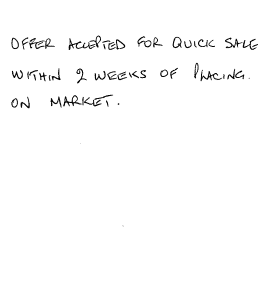 OFFER ACCEPTED FOR QUICK SALE
WITHIN 2 WEEKS OF PLACING.
ON MARKET.